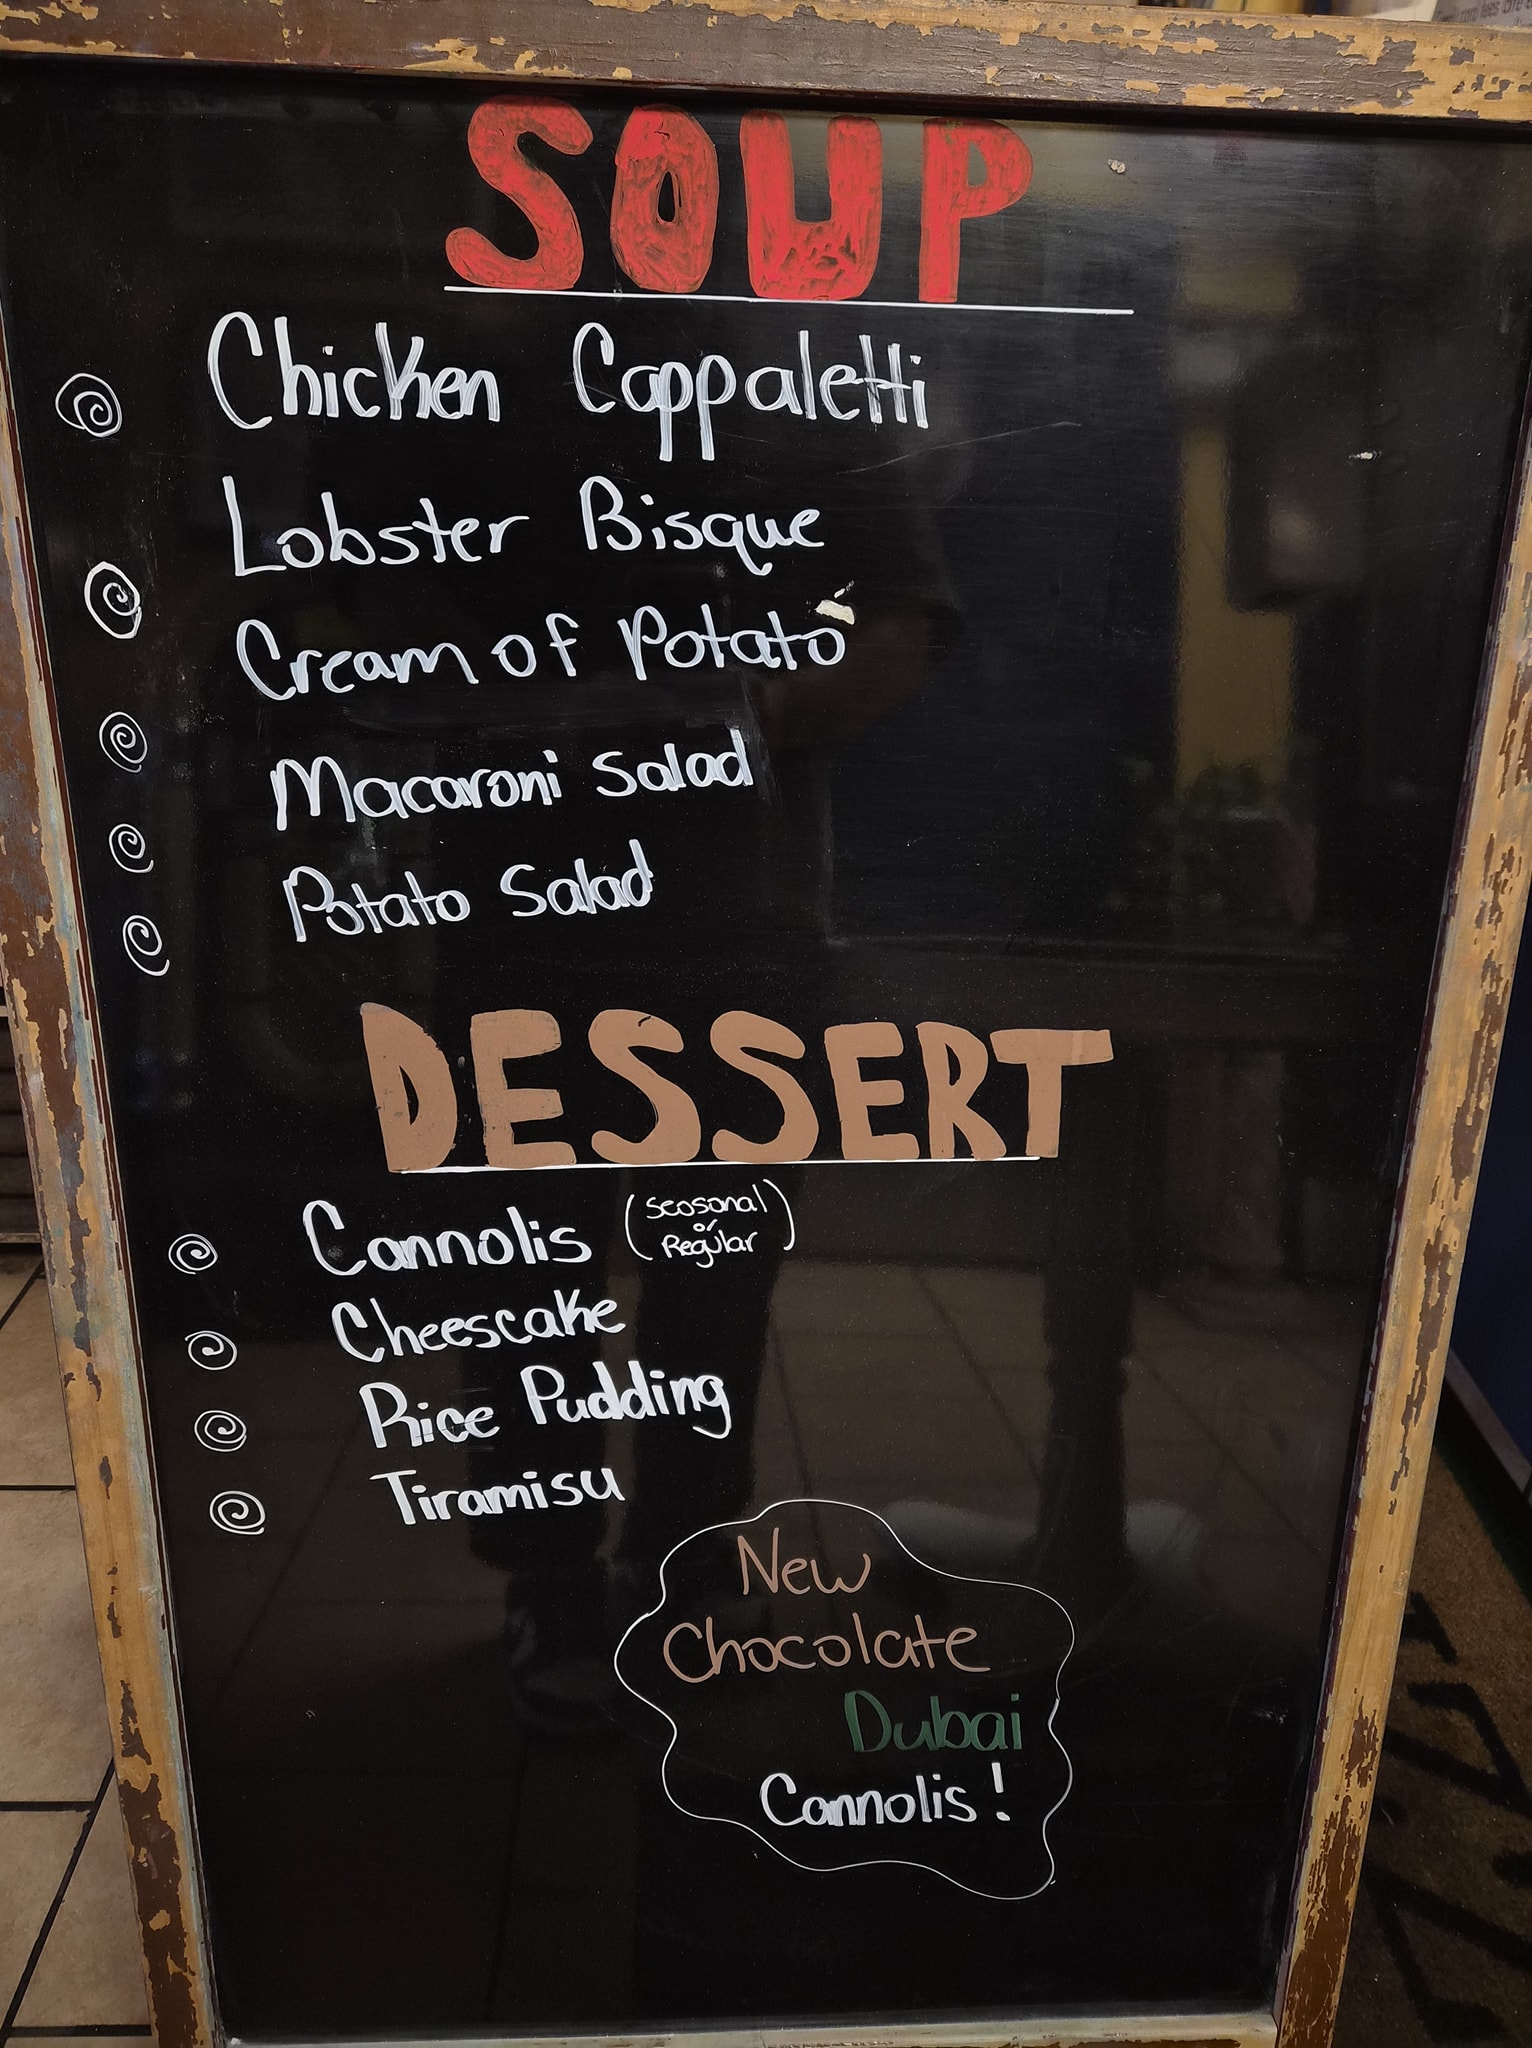 SOUP
Chicken Cappaletti
Lobster Bisque
Cream of Potato
Macaroni Salad
Potato Salad
DESSERT
Cannolis (Seosonal
or
Regular)
Cheescake
Rice Pudding
Tiramisu
New
Chocolate
Dubai
Cannolis!